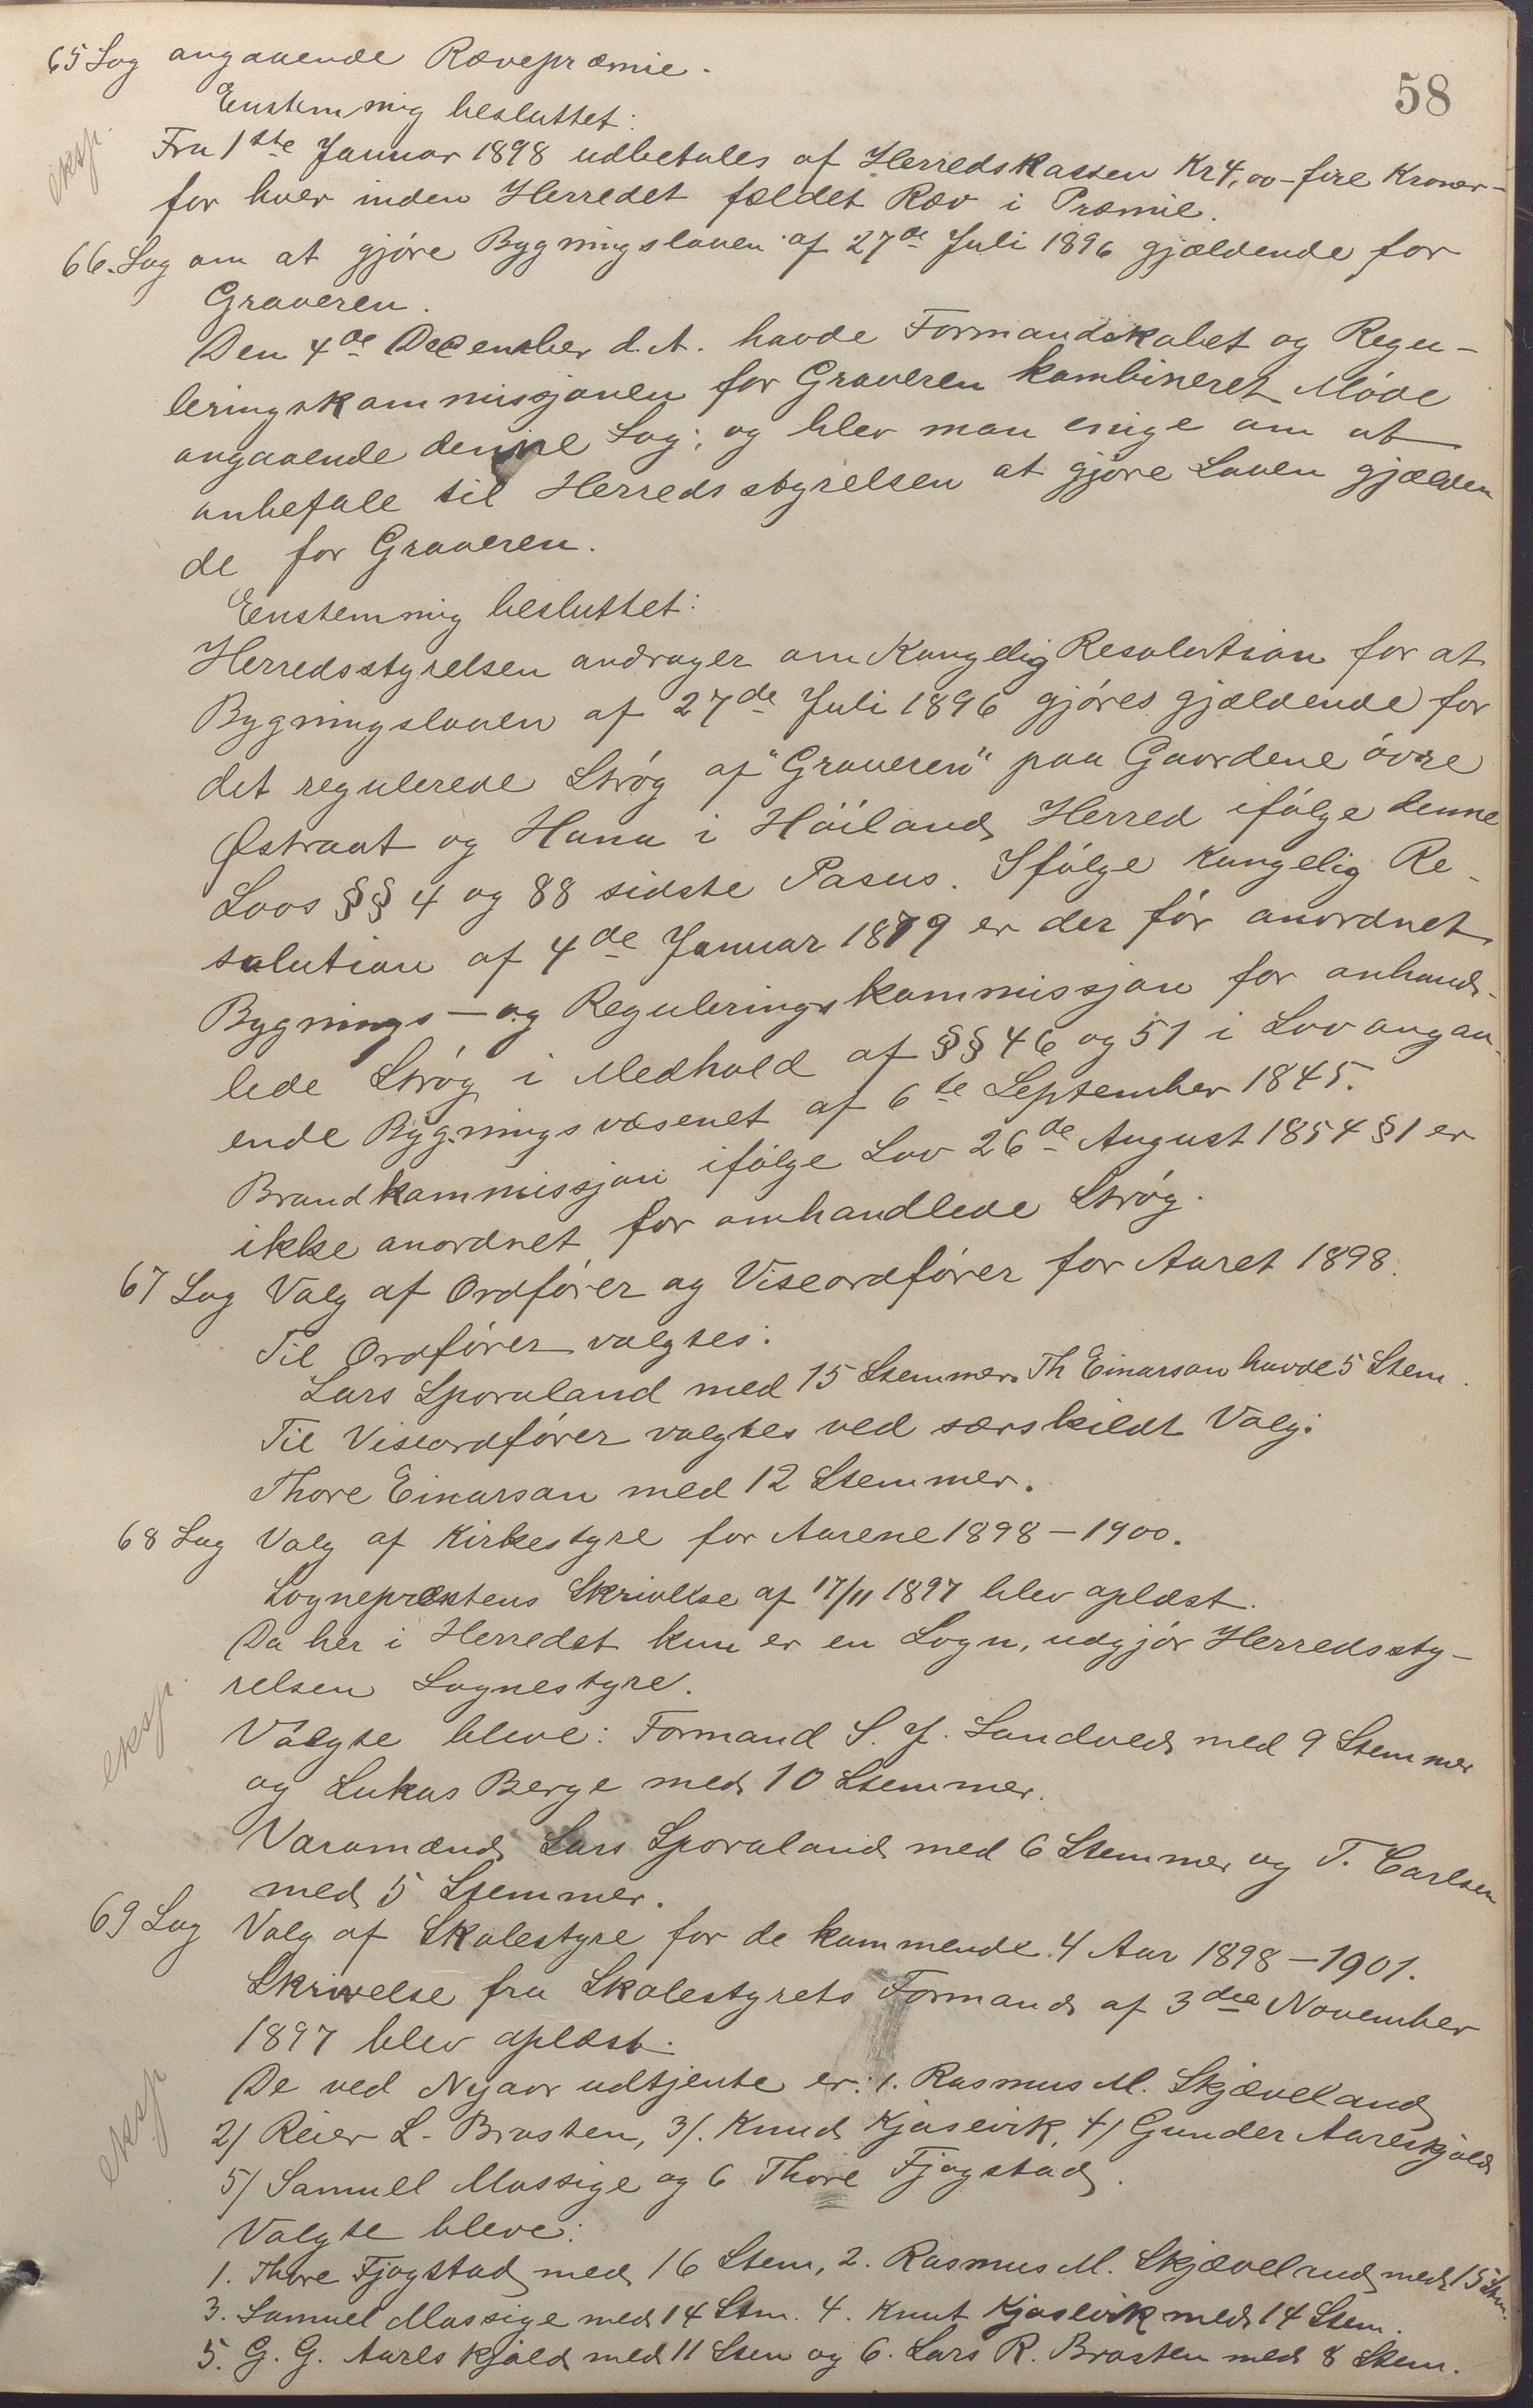 58
65 Sag angaaende Rævepræmie.
Enstemmig besluttet:
eksp.
Fra 1ste Januar 1898 udbetales af Herredskassen Kr 4,00 - fire Kroner -
for hver inden Herredet fældet Ræv i Præmie.
66. Sag om at gjøre Bygningsloven af 27de Juli 1896 gjældende for
Graveren.
Den 4de December d.A. havde Formandskabet og Regu-
leringskommissjonen for Graveren kombineret Møde
angaaende denne Sag; og blev man enige om at
anbefale til Herredsstyrelsen at gjøre Loven gjælden
de for Graveren.
Eenstemmig besluttet:
Herredsstyrelsen andrager om Kongelig Resolution for at
Bygningsloven af 27de Juli 1896 gjøres gjældende for
det regulerede Strøg af "Graveren" paa Gaardene øvre
Østraat og Hana i Høiland Herred ifølge denne
Lovs §§ 4 og 88 sidste Pasus. Ifølge Kongelig Re-
solution af 4de Januar 1879 er der før anordnet
Bygnings- og Reguleringskommissjon for anhand-
lede Strøg i Medhold af §§ 46 og 51 i Lov angaa-
ende Bygningsvæsenet af 6te September 1845.
Brandkommissjon ifølge Lov 26de August 1854 § 1 er
ikke anordnet for omhandlede Strøg.
67 Sag Valg af Ordfører og Viseordfører for Aaret 1898.
Til Ordfører valgtes:
Lars Sporaland med 15 Stemmer. Th Einarson havde 5 Stem.
Til Viseordfører valgtes ved særskildt Valg:
Thore Einarson med 12 Stemmer.
68 Sag Valg af Kirkestyre for Aarene 1898 - 1900.
Sogneprestens Skrivelse af 17/11 1897 blev oplæst.
Da her i Herredet kun er en Sogn, udgjør Herredssty-
relsen Sognestyre.
eksp.
Valgte bleve: Formand S. J. Sandved med 9 Stemmer
og Lukas Berge med 10 Stemmer.
Varamænd Lars Sporaland med 6 Stemmer og T. Carlsen
med 5 Stemmer.
69 Sag Valg af Skolestyre for de kommende 4 Aar 1898 - 1901.
Skrivelse fra Skolestyrets Formand af 3die November
1897 blev oplæst.
eksp
De ved Nyaar udtjente er: 1. Rasmus M. Skjæveland
2) Reier L. Brasten, 3). Knud Kjosevik, 4) Gunder Aareskjold
5) Samuel Massige og 6 Thore Fjogstad.
Valgte bleve:
1. Thore Fjogstad med 16 Stem, 2. Rasmus M. Skjæveland med 15 Stm.
3. Samuel Massige med 14 Stm. 4. Knut Kjosevik med 14 Stem.
5. G. G. Aareskjold med 11 Stem og 6. Lars R. Brasten med 8 Stem.